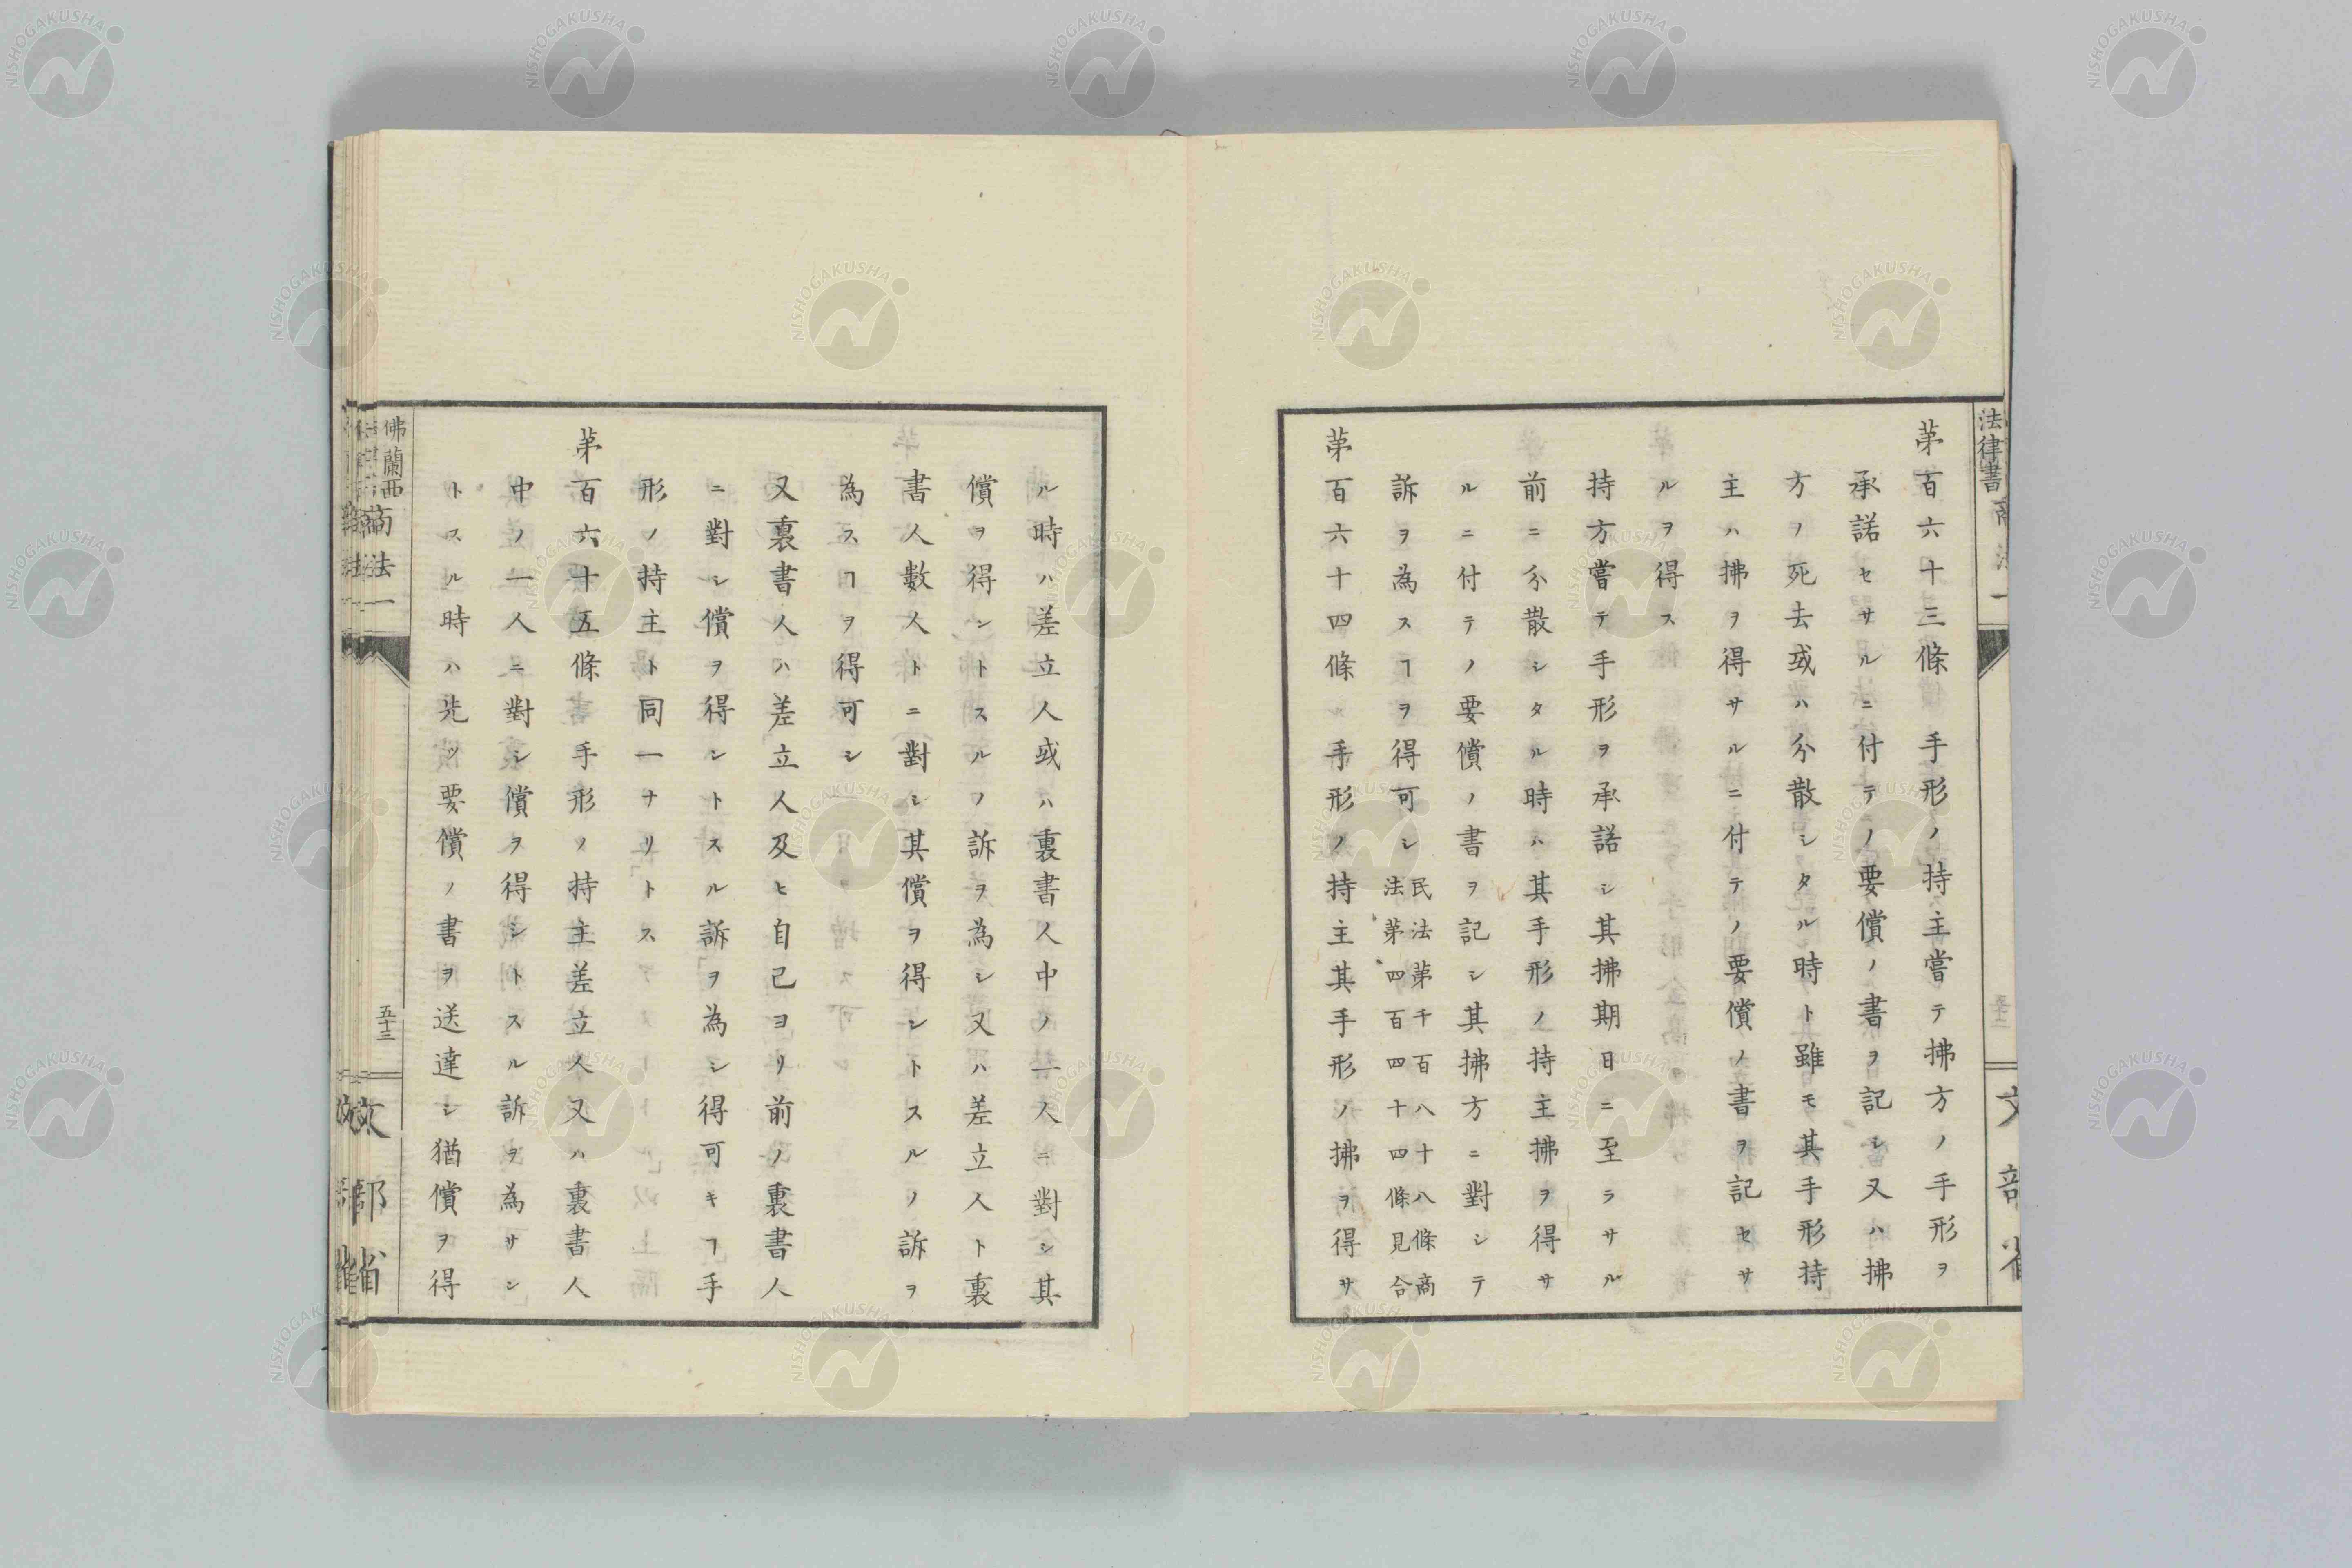 法律書
第百六十三條　手形ノ持主嘗テ拂方ノ手形ヲ
承諾セサルニ付テノ要償ノ書ヲ記シ又ハ拂
方ノ死去或ハ分散シタル時ト雖モ其手形持
主ハ拂ヲ得サルニ付テノ要償ノ書ヲ記セサ
ルヲ得ス
持方嘗テ手形ヲ承諾シ其拂期日ニ至ラサル
前ニ分散シタル時ハ其手形ノ持主拂ヲ得サ
ルニ付テノ要償ノ書ヲ記シ其拂方ニ對シテ
訴ヲ為スヿヲ得可シ
民法第千百八十八條商
法第四百四十四條見合
第百六十四條　手形ノ持主其手形ノ拂ヲ得サ
ル時ハ差立人或ハ裏書人中ノ一人ニ對シ其
償ヲ得ントスルノ訴ヲ為シ又ハ差立人ト裏
書人數人トニ對シ其償ヲ得ントスルノ訴ヲ
為スヿヲ得可シ
又裏書人ハ差立人及ヒ自己ヨリ前ノ裏書人
ニ對シ償ヲ得ントスル訴ヲ為シ得可キヿ手
形ノ持主ト同一ナリトス
第百六十五條　手形ノ持主差立人又ハ裏書人
中ノ一人ニ對シ償ヲ得ントスル訴ヲ為サン
トスル時ハ先ツ要償ノ書ヲ送達シ猶償ヲ得
佛蘭西商法一
五十三
文部省
NISHOGAKUSHA